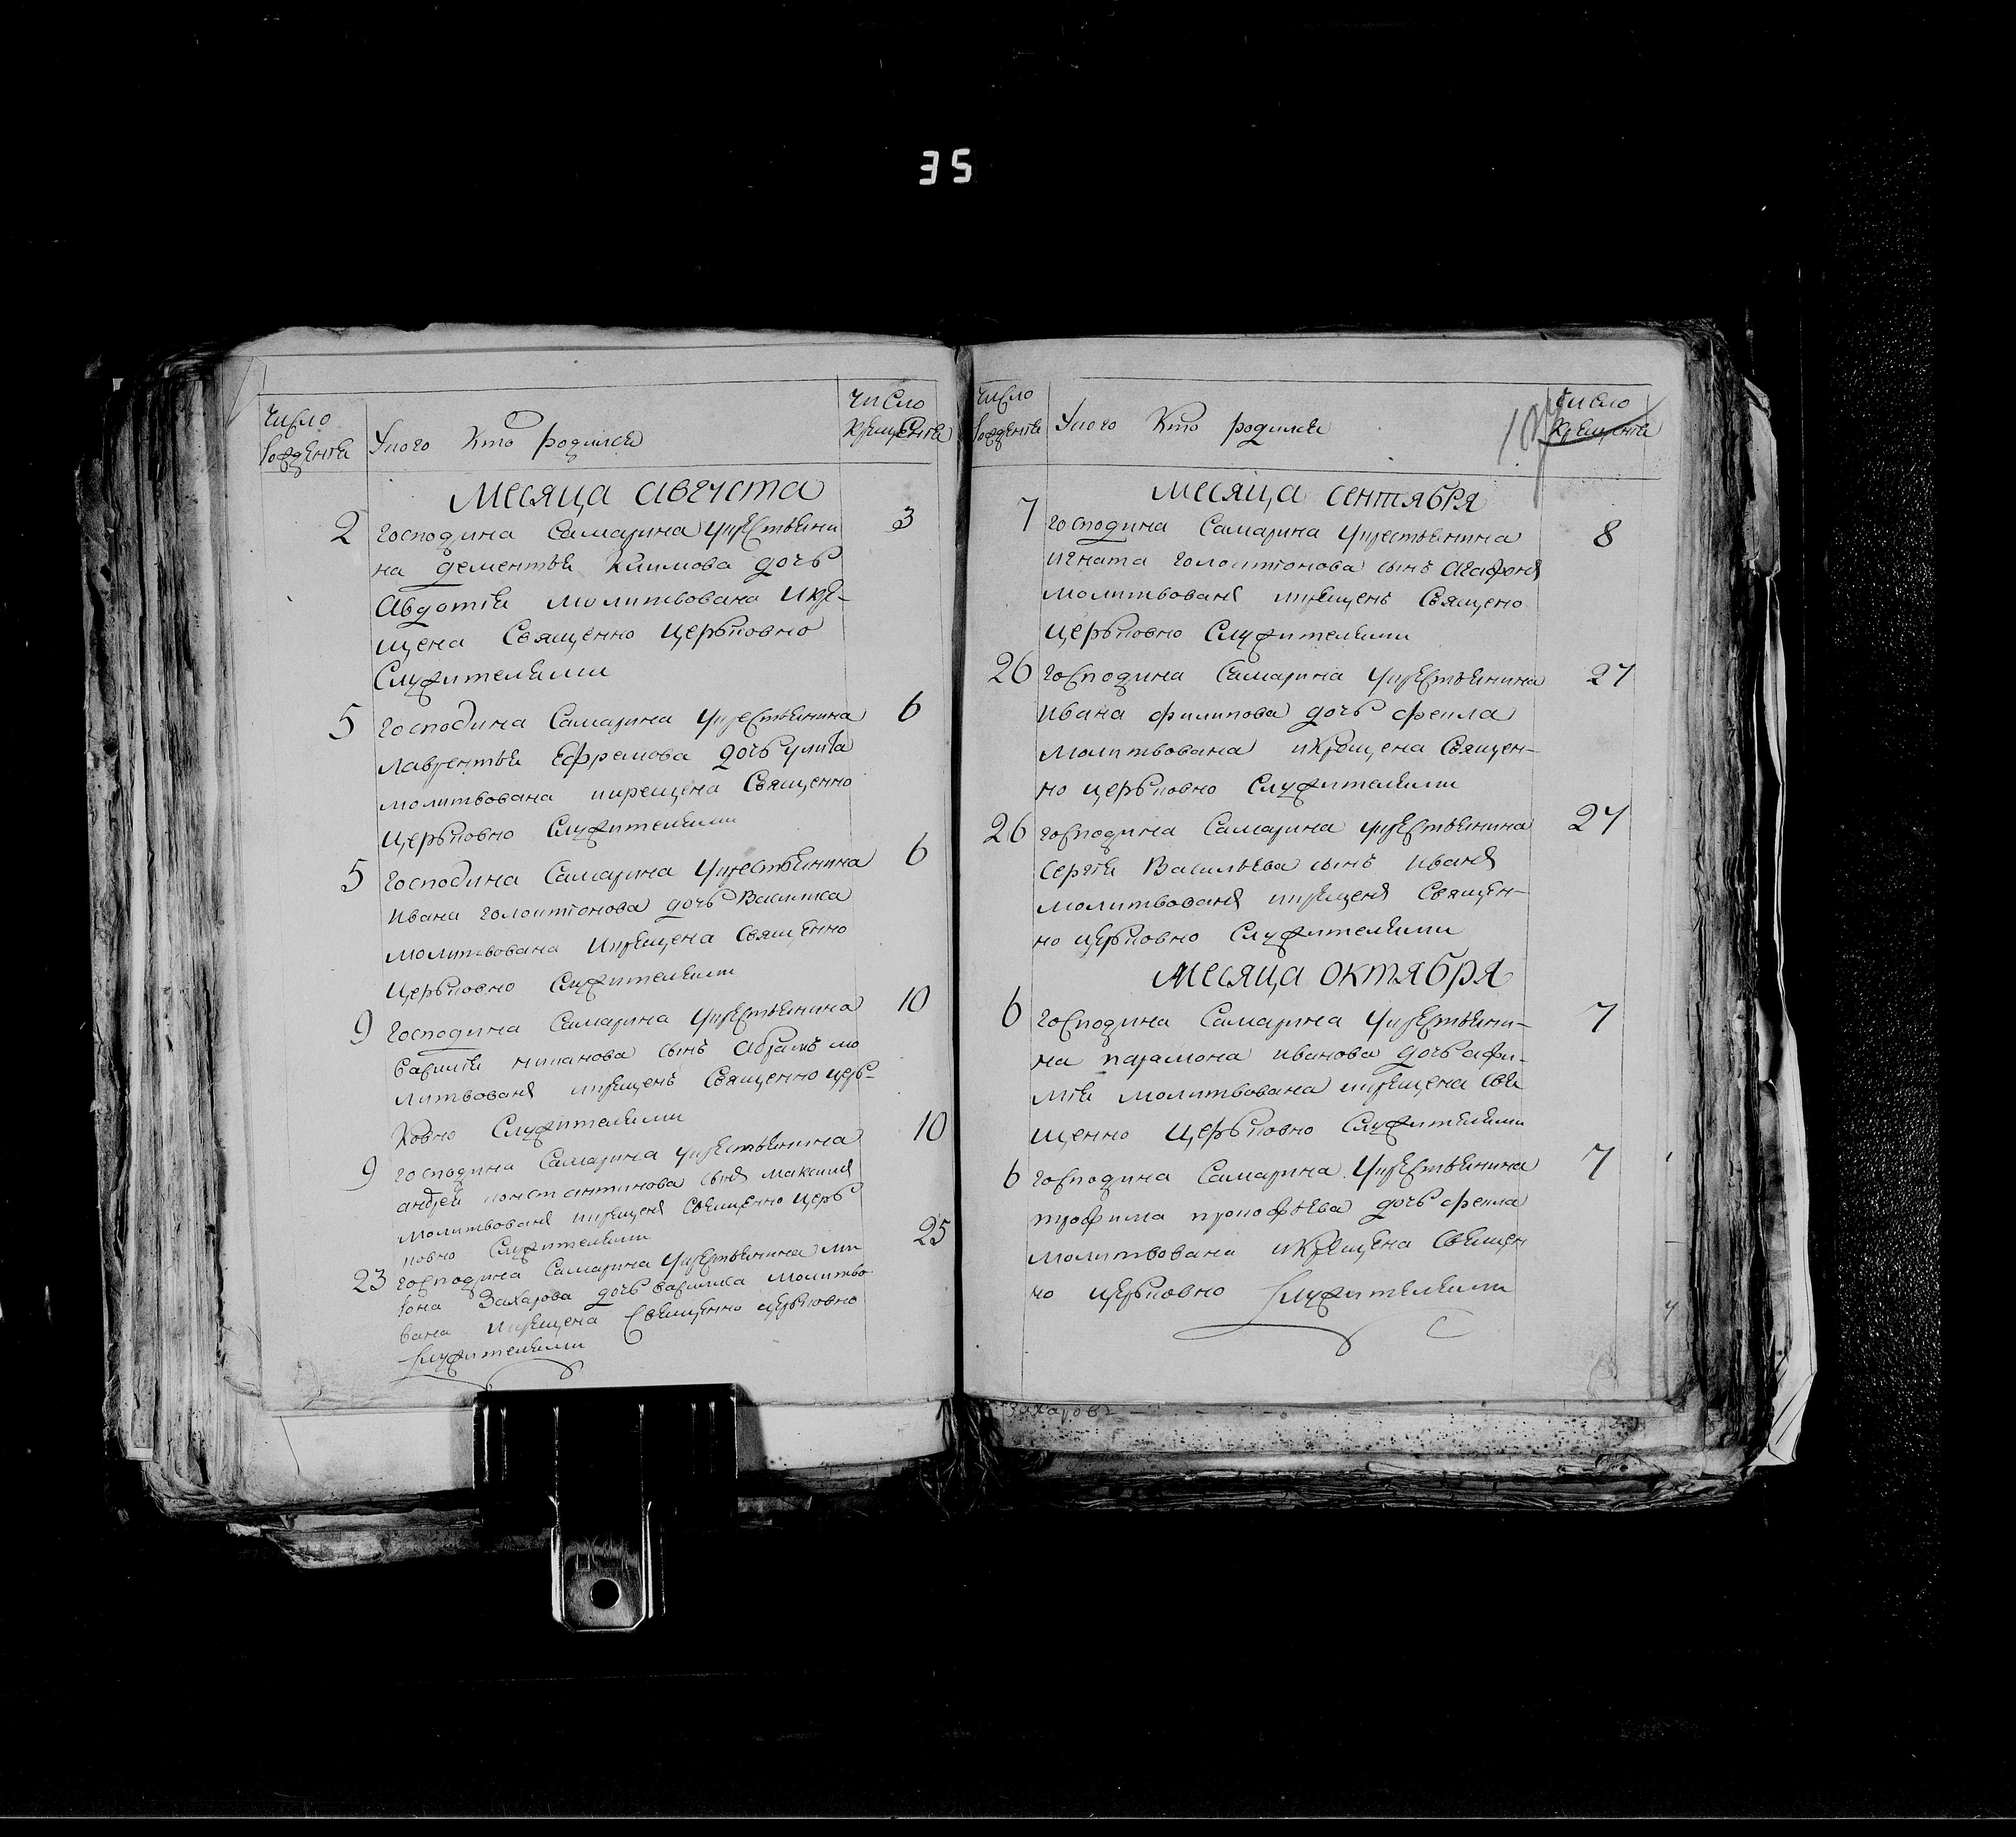 35
число
рожденiя
У кого Кто родился
число
крещенiя
Месяца августа
2 господина Самарина укрестьяни 3
на дементья Климова дочь
Авдотiя молитвована икре-
щена Священно церьковно
Служителями
5 господина Самарина укрестьянина 6
лаврентья Ефремова дочь улита
молитвована икрещена Священно
церьковно Служителями
5 господина Самарина укрестьянина 6
Ивана голоктiонова дочь Василиса
молитвована икрещена Священно
церьковно Служителями
9 господина Самарина укрестьянина 10
сынъ Абрамъ мо
литвованъ икрещенъ Священно церь-
ковно Служителями
9 господина Самарина укрестьянина 10
андрей константинова сынъ максимъ
молитвованъ икрещенъ Свещенно церь
ковно Служителями
23 господина Самарина укрестьянина ми 25
Захарова дочь молитво
вана икрещена Свещенно церьковно
Служителями
число
рожденiя
У кого Кто родился
число
крещенiя
месяца сентября
7 господина Самарина укрестьянина 8
игната голоктiонова сынъ агафонъ
молитвованъ икрещенъ Священо
церьковно Служителями
26 господина Самарина укрестьянина 27
Ивана филипова дочь фекла
молитвована икрещена Священ-
но церьковно Служителями
26 господина Самарина укрестьянина 27
Сергiя Васильева сынъ иванъ
молитвованъ икрещенъ Священ-
но церьковно Служителями
месяца октября
6 господина Самарина укрестьяни- 7
на парамона иванова дочь афи-
мiя молитвована икрещена Свя
щенно церьковно Служителями
6 господина Самарина укрестьянина 7
трофима прокофьева дочь фекла
молитвована икрещена Свещен
но церьковно Служителями
Захаровъ